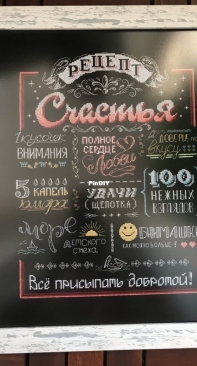 РЕЦЕПТ
Счастья
кусочек
ВНИМАНИЯ
ПОЛНОЕ
СЕРДЦЕ
Любви
ДОВЕРИЕ по
вкусу
5 КАПЕЛЬ
юмора
PinDIY
УДАЧИ
(ЩЕПОТКА)
100
НЕЖНЫХ
ВЗГЛЯДОВ
море
ДЕТСКОГО
смеха
ОБНИМАШКИ
КАК МОЖНО БОЛЬШЕ!
Всё присыпать добротой!